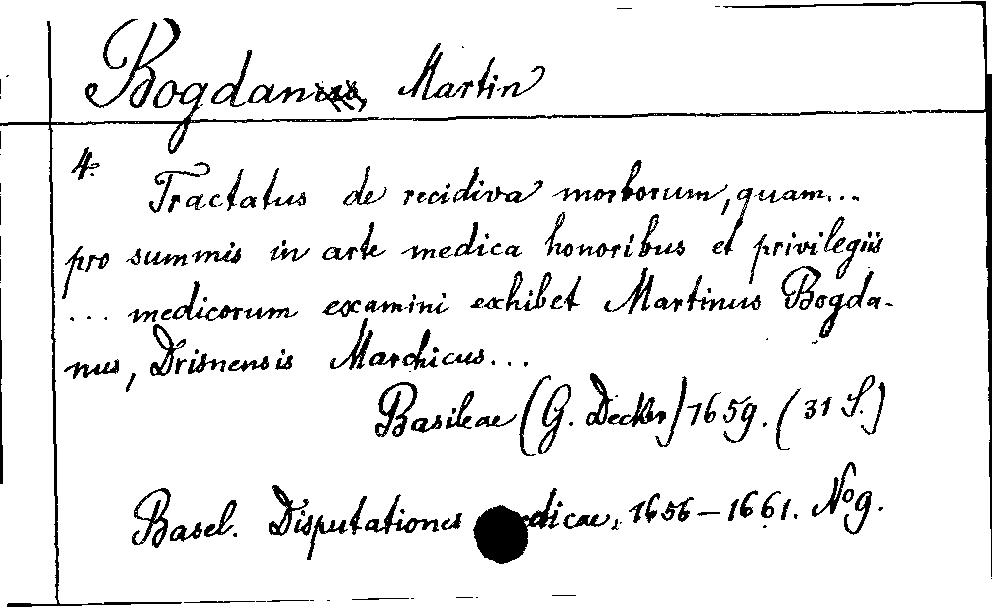 Bogdan Martin
4.
Tractatus de recidiva morborum, quam...
pro summis in arte medica honoribus et privilegiis
... medicorum examini exhibet Martinus Bogda-
nus, Drisnensis Marchicus...
Basileae (G. Decker) 1659. (31 S.)
Basel. Disputationes dicae, 1656-1661. No 9.